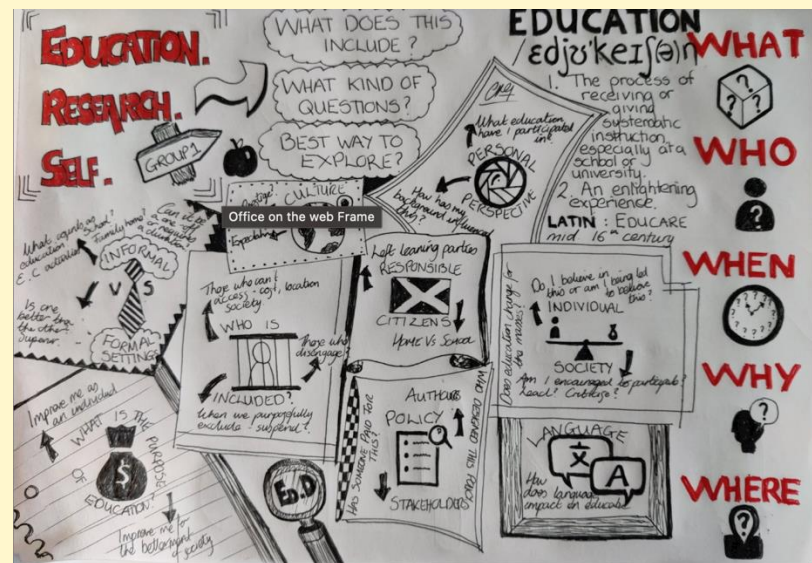 EDUCATION.
RESEARCH.
SELF.
GROUP 1
WHAT DOES THIS
INCLUDE?
WHAT KIND OF
QUESTIONS?
BEST WAY TO
EXPLORE?
EDUCATION
/ɛdjʊˈkeɪʃ(ə)n
1. The process of
receiving or
giving
systematic
instruction,
especially at a
school or
university.
2. An enlightening
experience.
LATIN : EDUCARE
mid 16th century
WHAT
WHO
WHEN
WHY
WHERE
What education
have I participated
in?
PERSONAL
PERSPECTIVE
How has my
background influenced
this?
CULTURE
Office on the web Frame
What counts as
education
School?
Family home?
INFORMAL
VS
FORMAL
SETTING
Is one
better than
the other
Those who can't
access - cost, location
society
WHO IS
INCLUDED?
Those who
disengage?
When we purposefully
exclude / suspend?
Left leaning parties
RESPONSIBLE
CITIZENS
HOME VS SCHOOL
Does education change for
the masses?
Do I believe in
this or am I being led
to believe
this?
INDIVIDUAL
SOCIETY
Am I encouraged to participate?
Lead? Criticise?
Improve me as
an individual
WHAT IS THE PURPOSE
OF EDUCATION?
$
Improve me for
the betterment of society
Ed.D
HAS SOMEONE PAID FOR
THIS?
AUTHORS
POLICY
STAKEHOLDERS
WHO DESIGNED THIS POLICY
LANGUAGE
文
A
How
does language
impact on